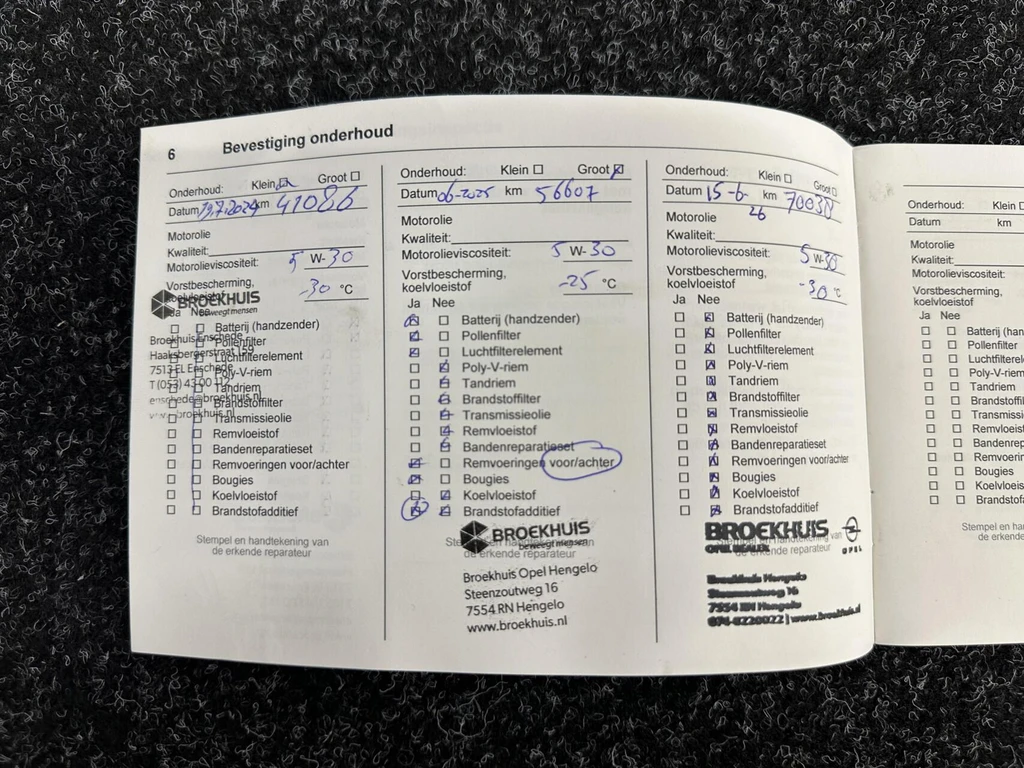 6 Bevestiging onderhoud
Onderhoud: Klein Groot
Datum 19.7.2024 km 41086
Motorolie
Kwaliteit:
Motorolieviscositeit: 5 W- 30
Vorstbescherming,
koelvloeistof -30 °C
BROEKHUIS
Beweegt mensen
Ja Nee
Batterij (handzender)
Pollenfilter
Luchtfilterelement
Poly-V-riem
Tandriem
Brandstoffilter
Transmissieolie
Remvloeistof
Bandenreparatieset
Remvoeringen voor/achter
Bougies
Koelvloeistof
Brandstofadditief
Broekhuis Enschede
Haaksbergerstraat 159
7513 EL Enschede
T (053) 43 00 112
enschede@broekhuis.nl
www.broekhuis.nl
Stempel en handtekening van
de erkende reparateur
Onderhoud: Klein Groot
Datum 06-2025 km 56607
Motorolie
Kwaliteit:
Motorolieviscositeit: 5 W- 30
Vorstbescherming,
koelvloeistof -25 °C
Ja Nee
Batterij (handzender)
Pollenfilter
Luchtfilterelement
Poly-V-riem
Tandriem
Brandstoffilter
Transmissieolie
Remvloeistof
Bandenreparatieset
Remvoeringen voor/achter
Bougies
Koelvloeistof
Brandstofadditief
BROEKHUIS
Beweegt mensen
Stempel en handtekening van
de erkende reparateur
Broekhuis Opel Hengelo
Steenzoutweg 16
7554 RN Hengelo
www.broekhuis.nl
Onderhoud: Klein Groot
Datum 15-6-26 km 70038
Motorolie
Kwaliteit:
Motorolieviscositeit: 5 W- 30
Vorstbescherming,
koelvloeistof -30 °C
Ja Nee
Batterij (handzender)
Pollenfilter
Luchtfilterelement
Poly-V-riem
Tandriem
Brandstoffilter
Transmissieolie
Remvloeistof
Bandenreparatieset
Remvoeringen voor/achter
Bougies
Koelvloeistof
Brandstofadditief
BROEKHUIS
OPEL DEALER
OPEL
Stempel en handtekening van
de erkende reparateur
Broekhuis Hengelo
Steenzoutweg 16
7554 RN Hengelo
074-8220022 | www.broekhuis.nl
Onderhoud: Klein
Datum km
Motorolie
Kwaliteit:
Motorolieviscositeit:
Vorstbescherming,
koelvloeistof
Ja Nee
Batterij (han
Pollenfilter
Luchtfiltere
Poly-V-rie
Tandriem
Brandstoff
Transmiss
Remvloeis
Bandenrep
Remvoerin
Bougies
Koelvloeis
Brandstofa
Stempel en hand
de erkende